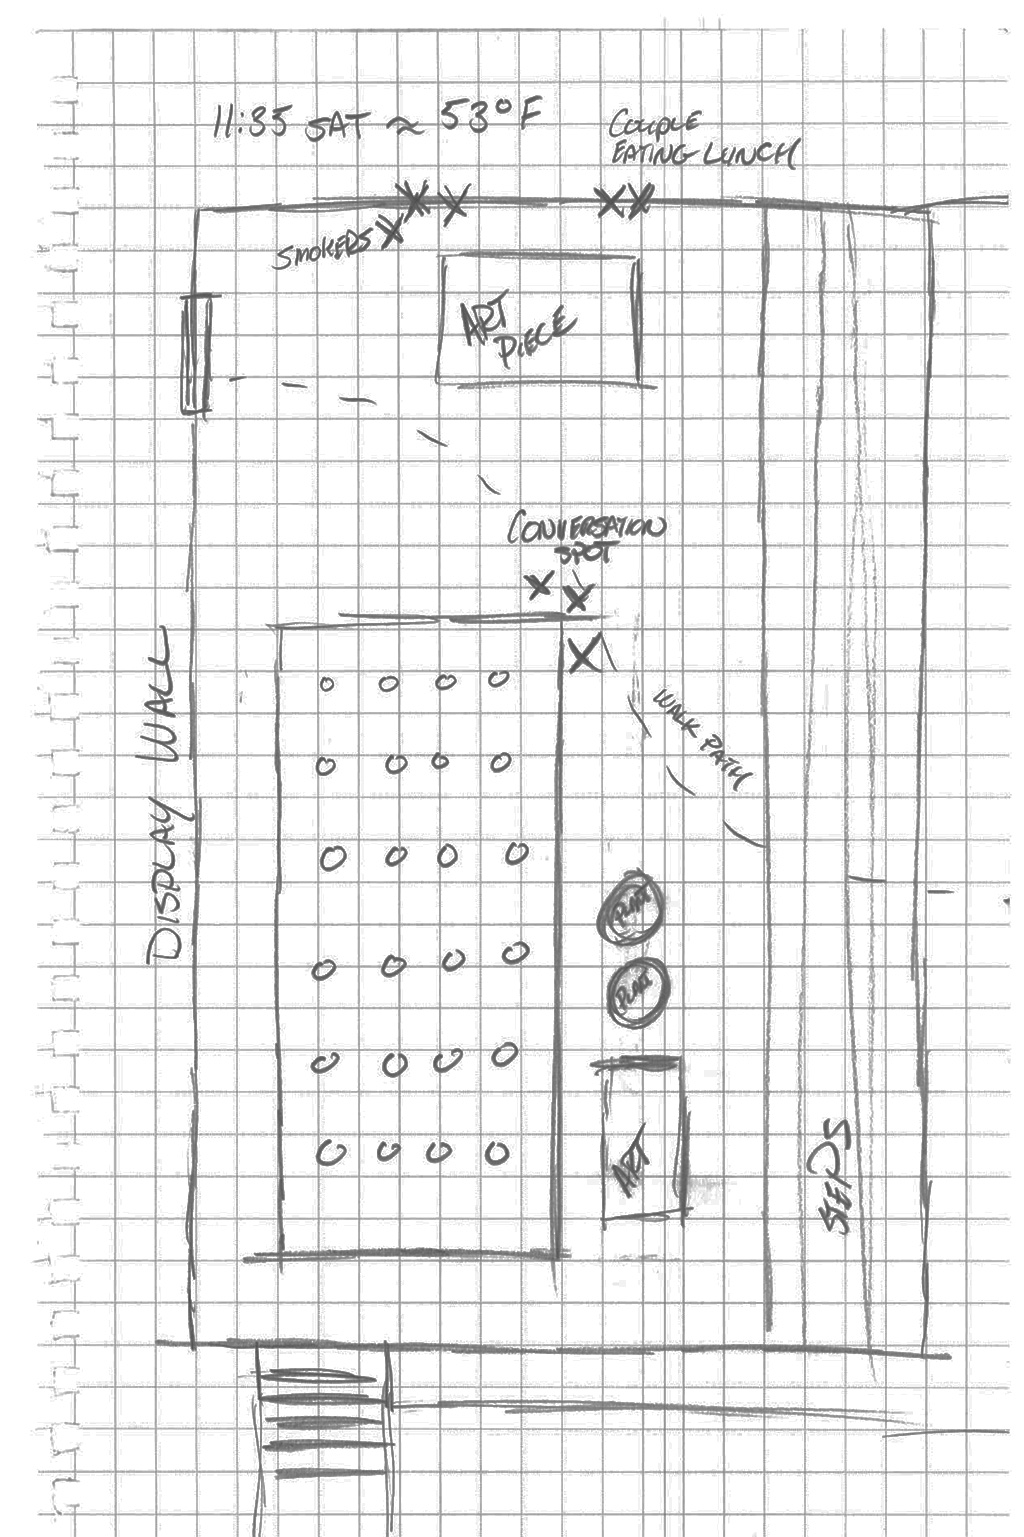 11:35 SAT ≈ 53°F
COUPLE
EATING LUNCH
SMOKERS
ART
PIECE
CONVERSATION
SPOT
WALK PATH
DISPLAY WALL
PLANT
PLANT
ART
STEPS